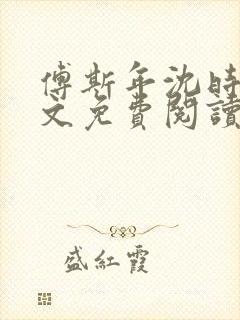 傅斯年沈時
文免費閱讀
盛紅霞